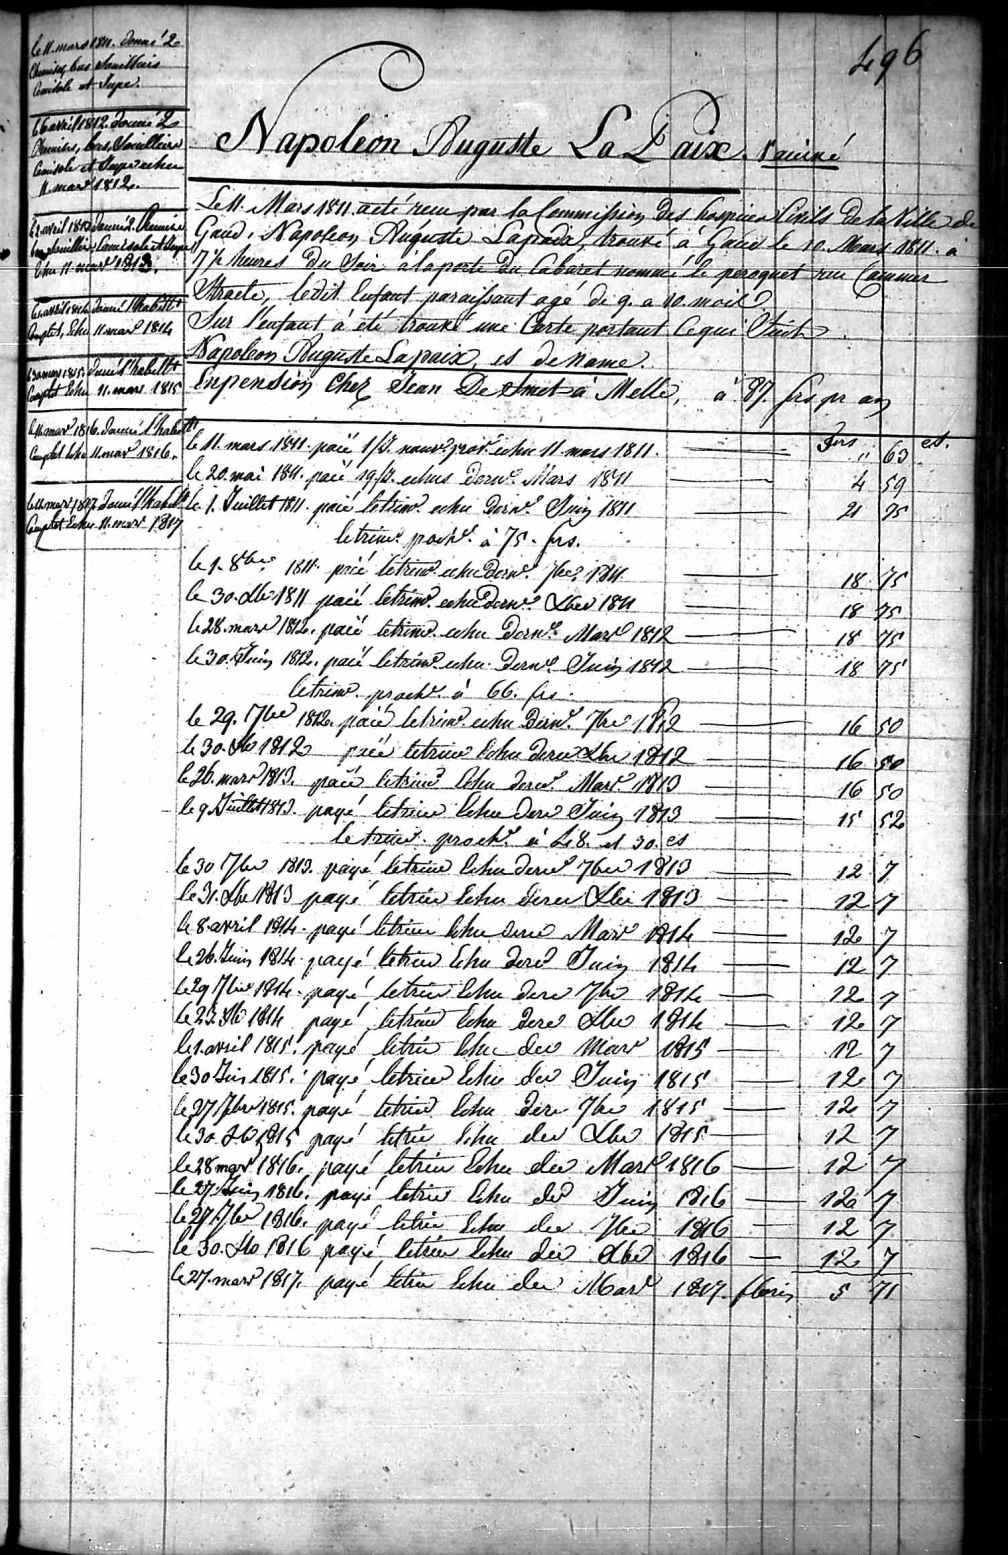 496
le 11. mars 1811. donné 2
Chemises, bas
Camisole et Jupe.
6 avril 1812. donné 2
Chemises, bas, Souilliers
Camisole et Jupe echu
11. mars 1812.
avril 1813 donné 2. Chemises
Camisole et Jupe
Echu 11. mars 1813.
avril 1814 donné l'habillt
Complet, Echu 11 mars 1814
mars 1815. donné l'habillt
Complet Echu 11. mars 1815
le 11. mars 1816. donné l'habillt
Complet Echu 11 mars 1816.
mars 1817. donné l'habillt
Complet Echu 11. mars 1817
Napoléon Auguste La Paix. Vacciné
Le 11. Mars 1811. a été reçu par la Commission des hospices Civils de la Ville de
Gand, Napoleon Auguste Lapaix, trouvé à Gand le 10. Mars 1811. à
7 ½ heures du Soir à la porte du Cabaret nommé le peroquet rue Cammer
Straete, ledit Enfant paraissant agé de 9. a 10. mois
Sur l'enfant à été trouvé une Carte portant ce qui Suit.
Napoleon Auguste Lapaix, es de name.
En pension Chez Jean De Smet à Melle, à 87. frs pr an
frs cs.
le 11. mars 1811. paié echu 11. mars 1811. " 63
le 20. mai 1811. paié echus dernr. Mars 1811 4 59
le 1. Juillet 1811. paié le trimr. echu dernr. Juin 1811 21 75
le trimr. prochr. à 75. frs.
le 1. 8bre 1811. paié le trimr. echu dernr. 7bre 1811 18 75
le 30. Xbre 1811 paié le trimr. echu dernr. Xbre 1811 18 75
le 28. mars 1812. paié le trimr. echu dernr. Mars 1812 18 75
le 30. Juin 1812. paié le trimr. echu dernr. Juin 1812 18 75
le trimr. prochr. à 66. frs.
le 29. 7bre 1812. paié le trimr. echu dernr. 7bre 1812 16 50
le 30. Xbre 1812 paié le trimr Echu dernr Xbre 1812 16 50
le 26. mars 1813. paié le trimr Echu dernr. Mars 1813 16 50
le 9. Juillet 1813. payé le trimr Echu dernr Juin 1813 15 52
le trimr. prochr. à 48. et 30. cs
le 30 7bre 1813. payé le trimr Echu dernr 7bre 1813 12 7
le 31. Xbre 1813 payé le trimr Echu dernr Xbre 1813 12 7
le 8 avril 1814. payé le trimr Echu dernr Mars 1814 12 7
le 26. Juin 1814. payé le trimr Echu dernr Juin 1814 12 7
le 29 7bre 1814. payé le trimr Echu dernr 7bre 1814 12 7
le 23. Xbre 1814 payé le trimr Echu dernr Xbre 1814 12 7
le 1. avril 1815. payé le trimr Echu der Mars 1815 12 7
le 30 Juin 1815. payé le trimr Echu der Juin 1815 12 7
le 27 7bre 1815. payé le trimr Echu dernr 7bre 1815 12 7
le 30. Xbre 1815 payé le trimr Echu der Xbre 1815 12 7
le 28 mars 1816. payé le trimr Echu der Mars 1816 12 7
le 27 Juin 1816. payé le trimr Echu der Juin 1816 12 7
le 27. 7bre 1816. payé le trimr Echu der 7bre 1816 12 7
le 30. Xbre 1816 payé le trimr Echu der Xbre 1816 12 7
le 27. mars 1817. payé le trimr Echu der Mars 1817. florins 5 71